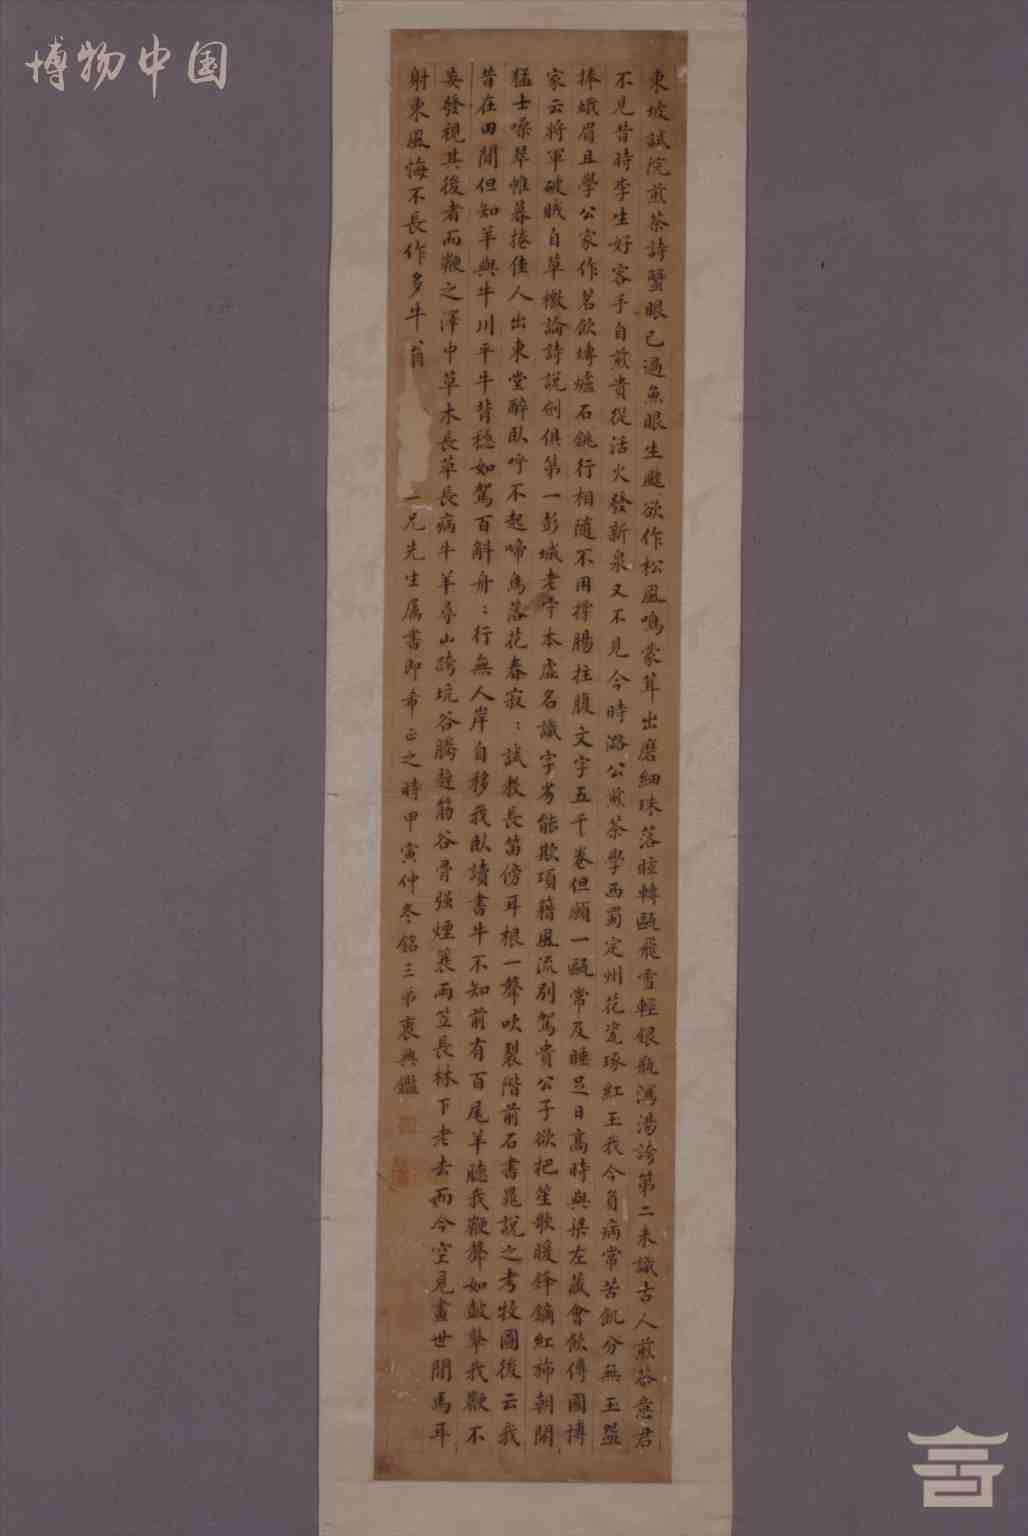 博物中国
東坡試院煎茶詩蟹眼已過魚眼生颼欲作松風鳴蒙茸出磨細珠落眩轉甌飛雪輕銀瓶瀉湯誇第二未識古人煎茶意君
不見昔時李生好客手自煎貴從活火發新泉又不見今時潞公煎茶學西蜀定州花瓷琢紅玉我今負病常苦飢分無玉盌
捧蛾眉且學公家作茗飲塼爐石銚行相隨不用撐腸拄腹文字五千卷但願一甌常及睡足日高時與梁左藏會飲傅國博
家云將軍破賊自草檄論詩說劍俱第一彭城老守本虛名識字劣能欺項籍風流別駕貴公子欲把笙歌暖鋒鏑紅旆朝開
猛士噪翠帷暮捲佳人出東堂醉臥呼不起啼鳥落花春寂:試教長笛傍耳根一聲吹裂階前石書晁說之考牧圖後云我
昔在田間但知羊與牛川平牛背穩如駕百斛舟:行無人岸自移我臥讀書牛不知前有百尾羊聽我鞭聲如鼓鼙我鞭不
妄發視其後者而鞭之澤中草木長草長病牛羊尋山跨坑谷騰趠筋骨強煙蓑雨笠長林下老去而今空見畫世間馬耳
射東風悔不長作多牛翁 一兄先生属書即希正之時甲寅仲冬銘三弟裘興鑑